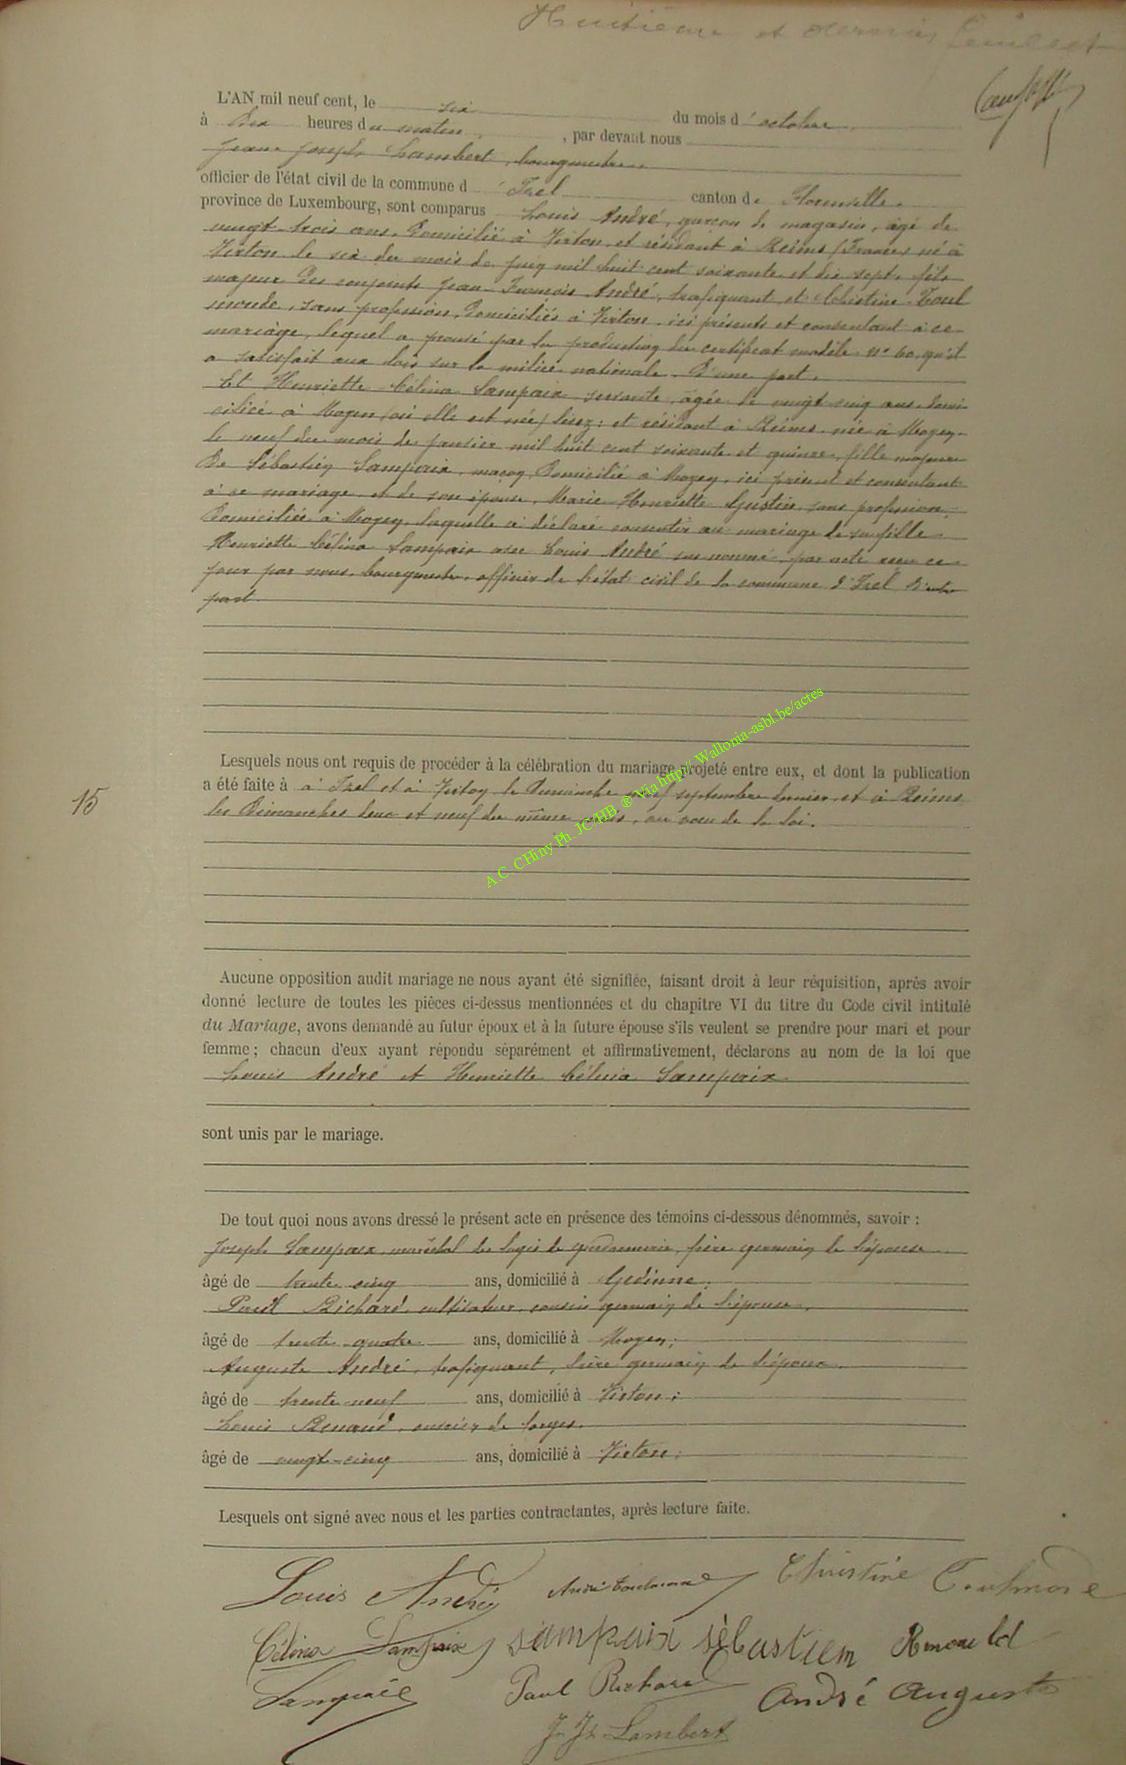 Huitième et dernier feuillet
L'AN mil neuf cent, le six du mois d'octobre
à dix heures du matin, par devant nous
Jean Joseph Lambert, bourgmestre
officier de l'état civil de la commune d'Izel canton de Florenville
province de Luxembourg, sont comparus Louis André, garçon de magasin, âgé de
vingt-trois ans, domicilié à Virton et résidant à Reims (France) né à
Virton le six du mois de juin mil huit cent soixante et dix sept, fils
majeur des conjoints Jean-François André, trafiquant et Christine Toul
monde, sans profession, domiciliés à Virton, ici présents et consentant à ce
mariage, lequel a prouvé par la production du certificat modèle n° 60, qu'il
a satisfait aux lois sur la milice nationale. D'une part.
Et Henriette Célina Sampaix servante, âgée de vingt cinq ans, domi
ciliée à Moyen, où elle est née/lisez: et résidant à Reims, née à Moyen
le neuf du mois de janvier mil huit cent soixante et quinze, fille majeure
de Sébastien Sampaix, maçon, domicilié à Moyen, ici présent et consentant
à ce mariage et de son épouse, Marie Henriette Gustin, sans profession,
domiciliée à Moyen, laquelle a déclaré consentir au mariage de sa fille
Henriette Célina Sampaix avec Louis André sus nommé, par acte reçu ce
jour par nous, bourgmestre, officier de l'état civil de la commune d'Izel. D'autre
part.
Lesquels nous ont requis de procéder à la célébration du mariage projeté entre eux, et dont la publication
a été faite à à Izel et à Virton le Dimanche septembre dernier et à Reims
15
les Dimanches deux et neuf du même mois, au vœu de la loi.
A.C. CHiny Ph JC HB ® Via http:// Wallonia-asbl.be/actes
Aucune opposition audit mariage ne nous ayant été signifiée, faisant droit à leur réquisition, après avoir
donné lecture de toutes les pièces ci-dessus mentionnées et du chapitre VI du titre du Code civil intitulé
du Mariage, avons demandé au futur époux et à la future épouse s'ils veulent se prendre pour mari et pour
femme; chacun d'eux ayant répondu séparément et affirmativement, déclarons au nom de la loi que
Louis André et Henriette Célina Sampaix
sont unis par le mariage.
De tout quoi nous avons dressé le présent acte en présence des témoins ci-dessous dénommés, savoir :
Joseph Sampaix, maréchal des logis de gendarmerie, frère germain de l'épouse
âgé de trente cinq ans, domicilié à Gedinne;
Paul Richard, cultivateur, cousin germain de l'épouse,
âgé de trente quatre ans, domicilié à Moyen;
Auguste André, trafiquant, frère germain de l'époux
âgé de trente neuf ans, domicilié à Virton;
Louis Renaud, ouvrier de forges,
âgé de vingt-cinq ans, domicilié à Virton;
Lesquels ont signé avec nous et les parties contractantes, après lecture faite.
Louis André André Toulmonde Christine Toulmonde
Célina Sampaix Sampaix Sèbastiem
Sampaix Paul Richard André Auguste
J. Jh. Lambert